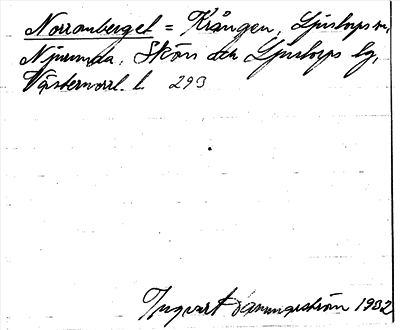 Norranberget = Krången, Ljustorps sn,
Njurunda, Sköns och Ljustorps tg,
Västernorrl. l. 293
Ingvart 1932